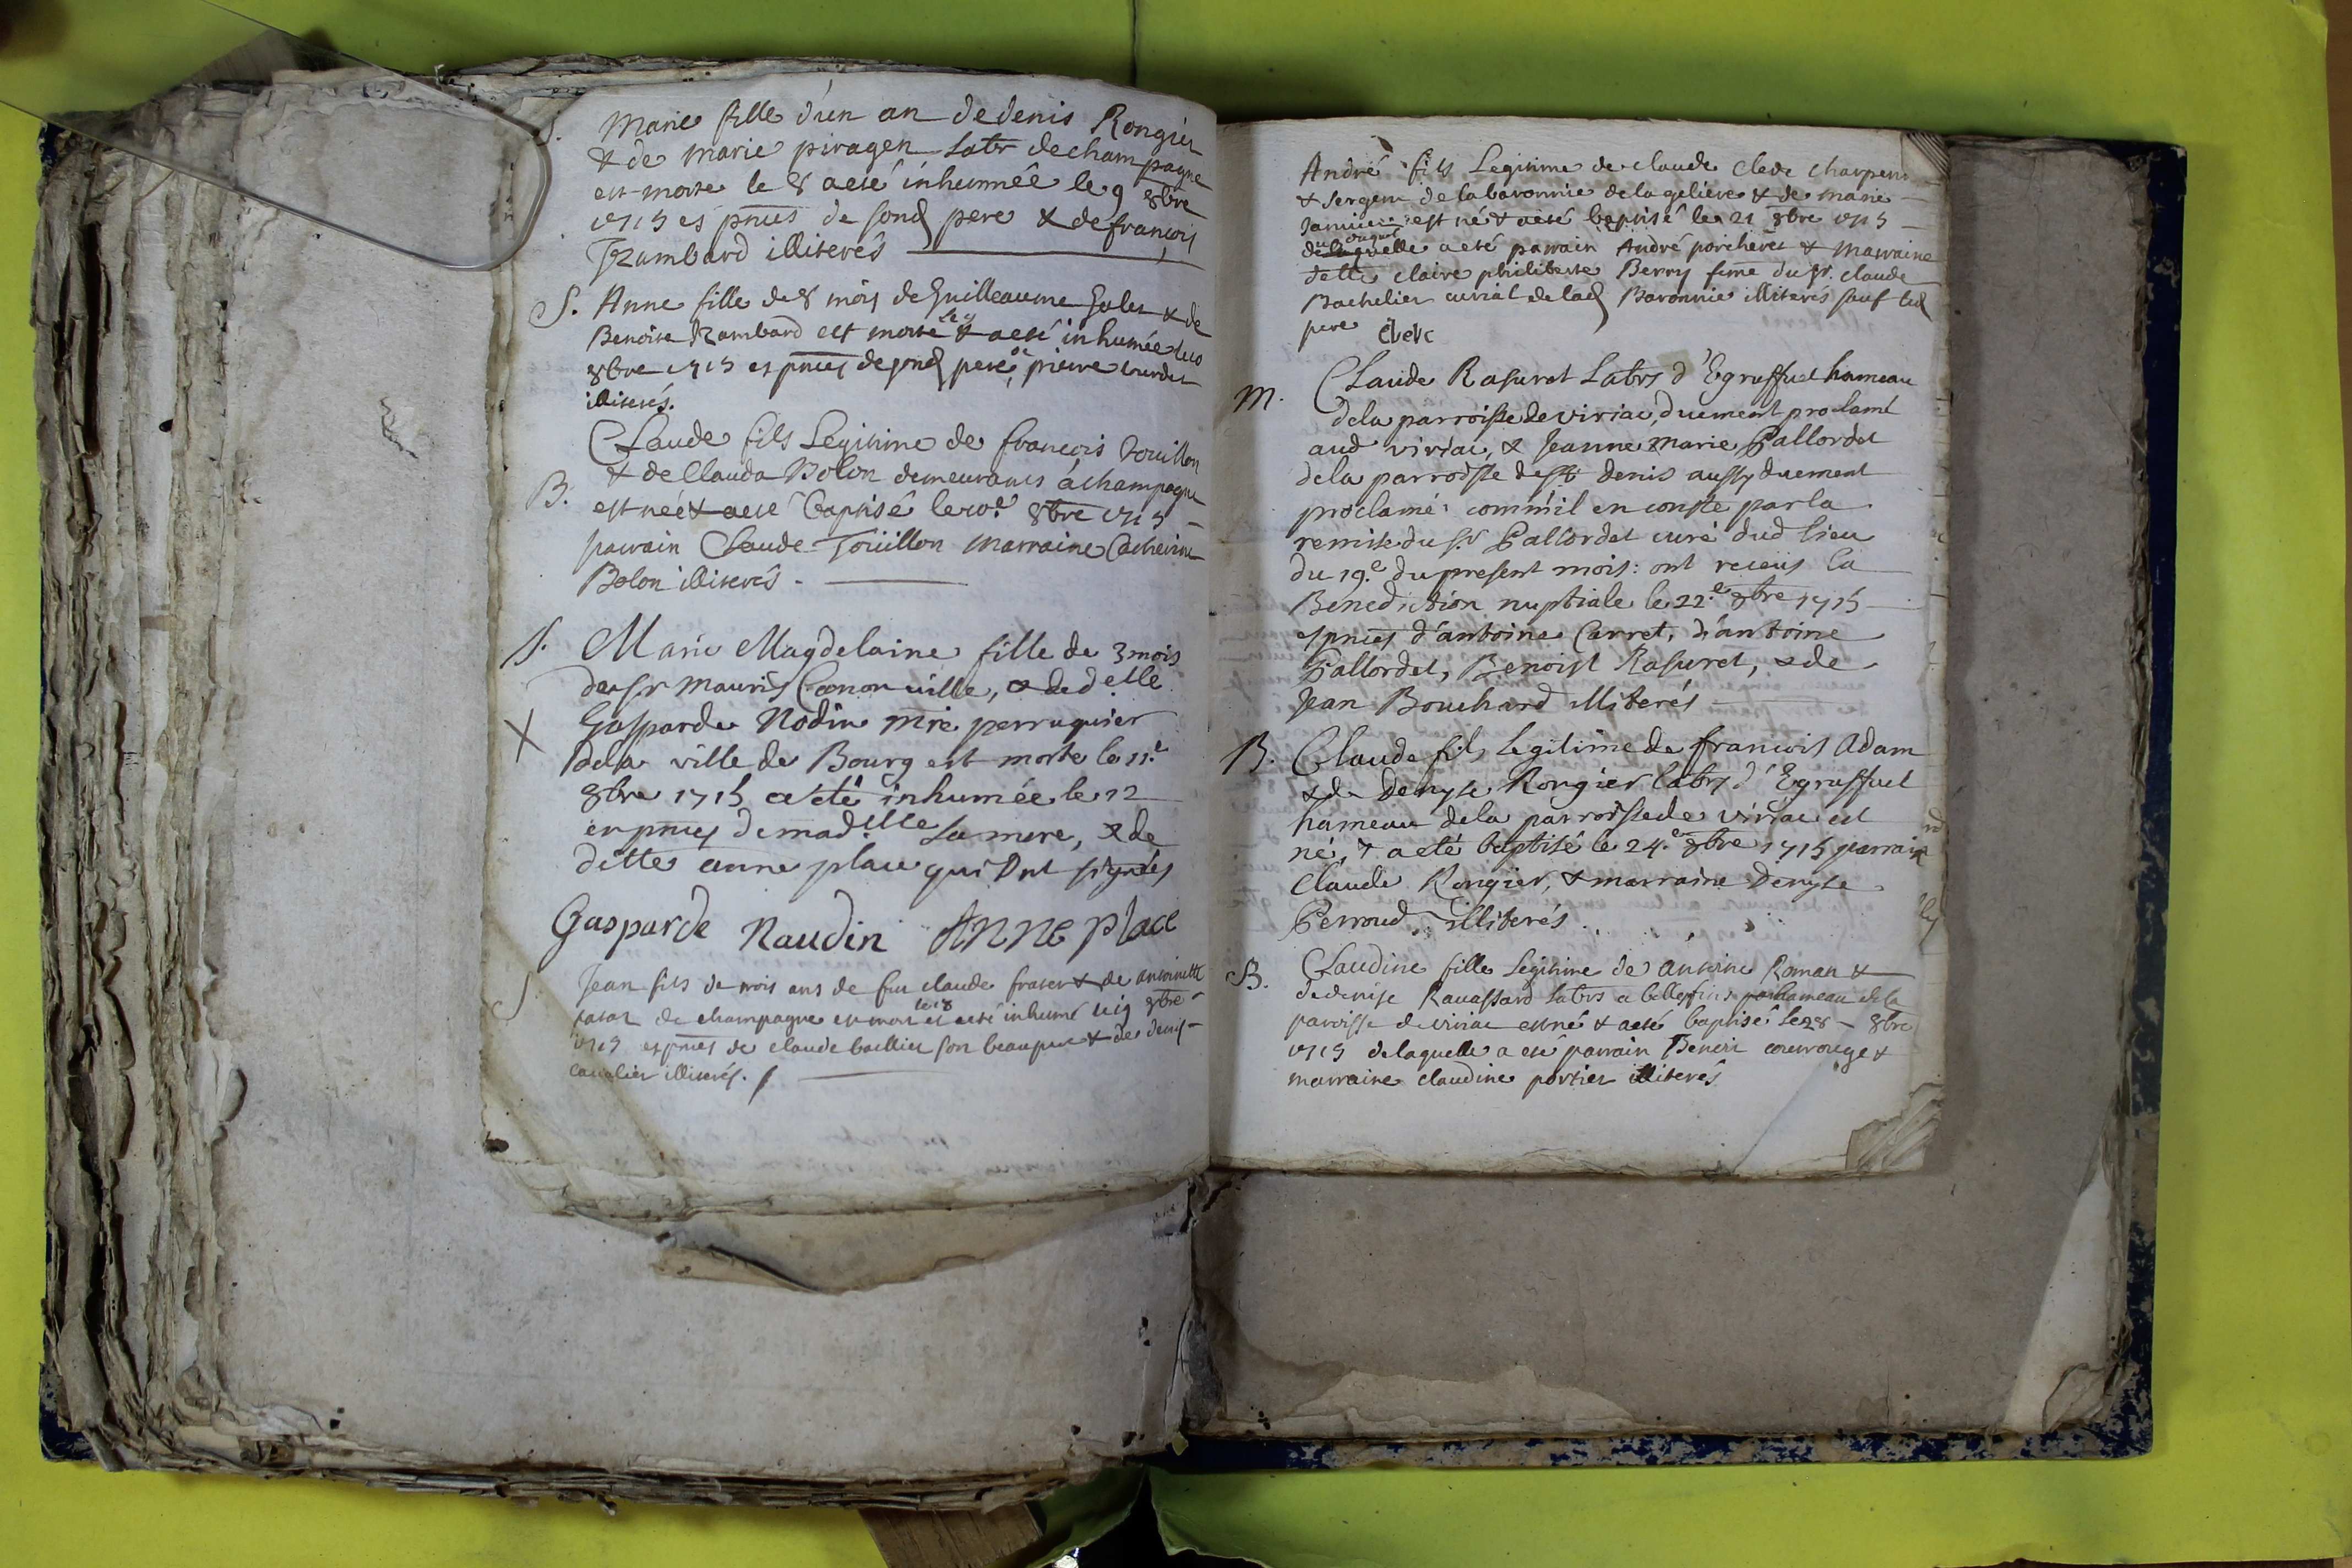 S. Marie fille d'un an de denis Rongier
& de marie piragen Labr de champagne
est morte le 8 a eté inhumée le 9 8bre
1715 es pnces de sond pere & de françois
Rambard illiterés
S. Anne fille de 8 mois de Guilleaume & de
Benoite Rambard est morte le 9 & a eté inhumée le 10
8bre 1715 es pnces de sond pere, de pierre
illiterés.
Claude fils Legitime de françois Touillon
B. & de Clauda Bolon demeurants à champagne
est né & a eté baptisé le 10e 8bre 1715
parrain Claude Toüillon marraine Catherine
Bolon illiterés.
S. Marie Magdelaine fille de 3 mois
de sr Mauris Canonville, & de delle
X Gasparde Nodin mre perruquier
de la ville de Bourg est morte le 11e
8bre 1715 a eté inhumée le 12
en pnces de madelle sa mere, & de
ditte anne place qui Ont signées
Gasparde Naudin ANNE place
S Jean fils de trois ans de feu claude frater & de antoinette
de champagne est mort le 18 et a eté inhumé le 19 8bre
1715 es pnces de claude baillier son beaupere & de denis
cavalier illiterés.
André fils Legitime de claude Clerc charpent
& sergent de la baronnie de la geliere & de marie
Janniei est né & a eté baptisé le 21 8bre 1715
duquel de laquelle a eté parrain André porcheret & marraine
delle claire philiberte Berry feme du sr. claude
Bachelier curial de lad Baronnie illiterés sauf led
pere Clerc
M. Claude Rasuret Labrs d'Egruffuel hameau
de la parroisse de viriac, duement proclamé
aud viriac, & Jeanne marie Pallordet
de la parroisse de st denis aussy duement
proclamé: comm'il en conste par la
remise du s.r Pallordet curé dud lieu
du 19.e du present mois: ont receus la
Benediction nuptiale le 22.e 8bre 1715
es pnces d'antoine Carret, d'antoine
Pallordet, Benoist Rasuret, & de
Jean Bouchard illiterés
B. Claude fils legitime de francois Adam
& de Denyse Rongier labrs d'Egruffuel
hameau de la parroisse de viriac est
né, & a eté baptisé le 24.e 8bre 1715 parrain
Claude Rongier, & marraine Denyse
Perroud illiterés.
B. Claudine fille legitime de Antoine Roman &
de denise Ravassard labrs a bellefin hameau de la
paroisse de viriac est né & a eté baptisé le 28 8bre
1715 de laquelle a eté parrain Benoit couvrouge &
marraine claudine portier illiterés